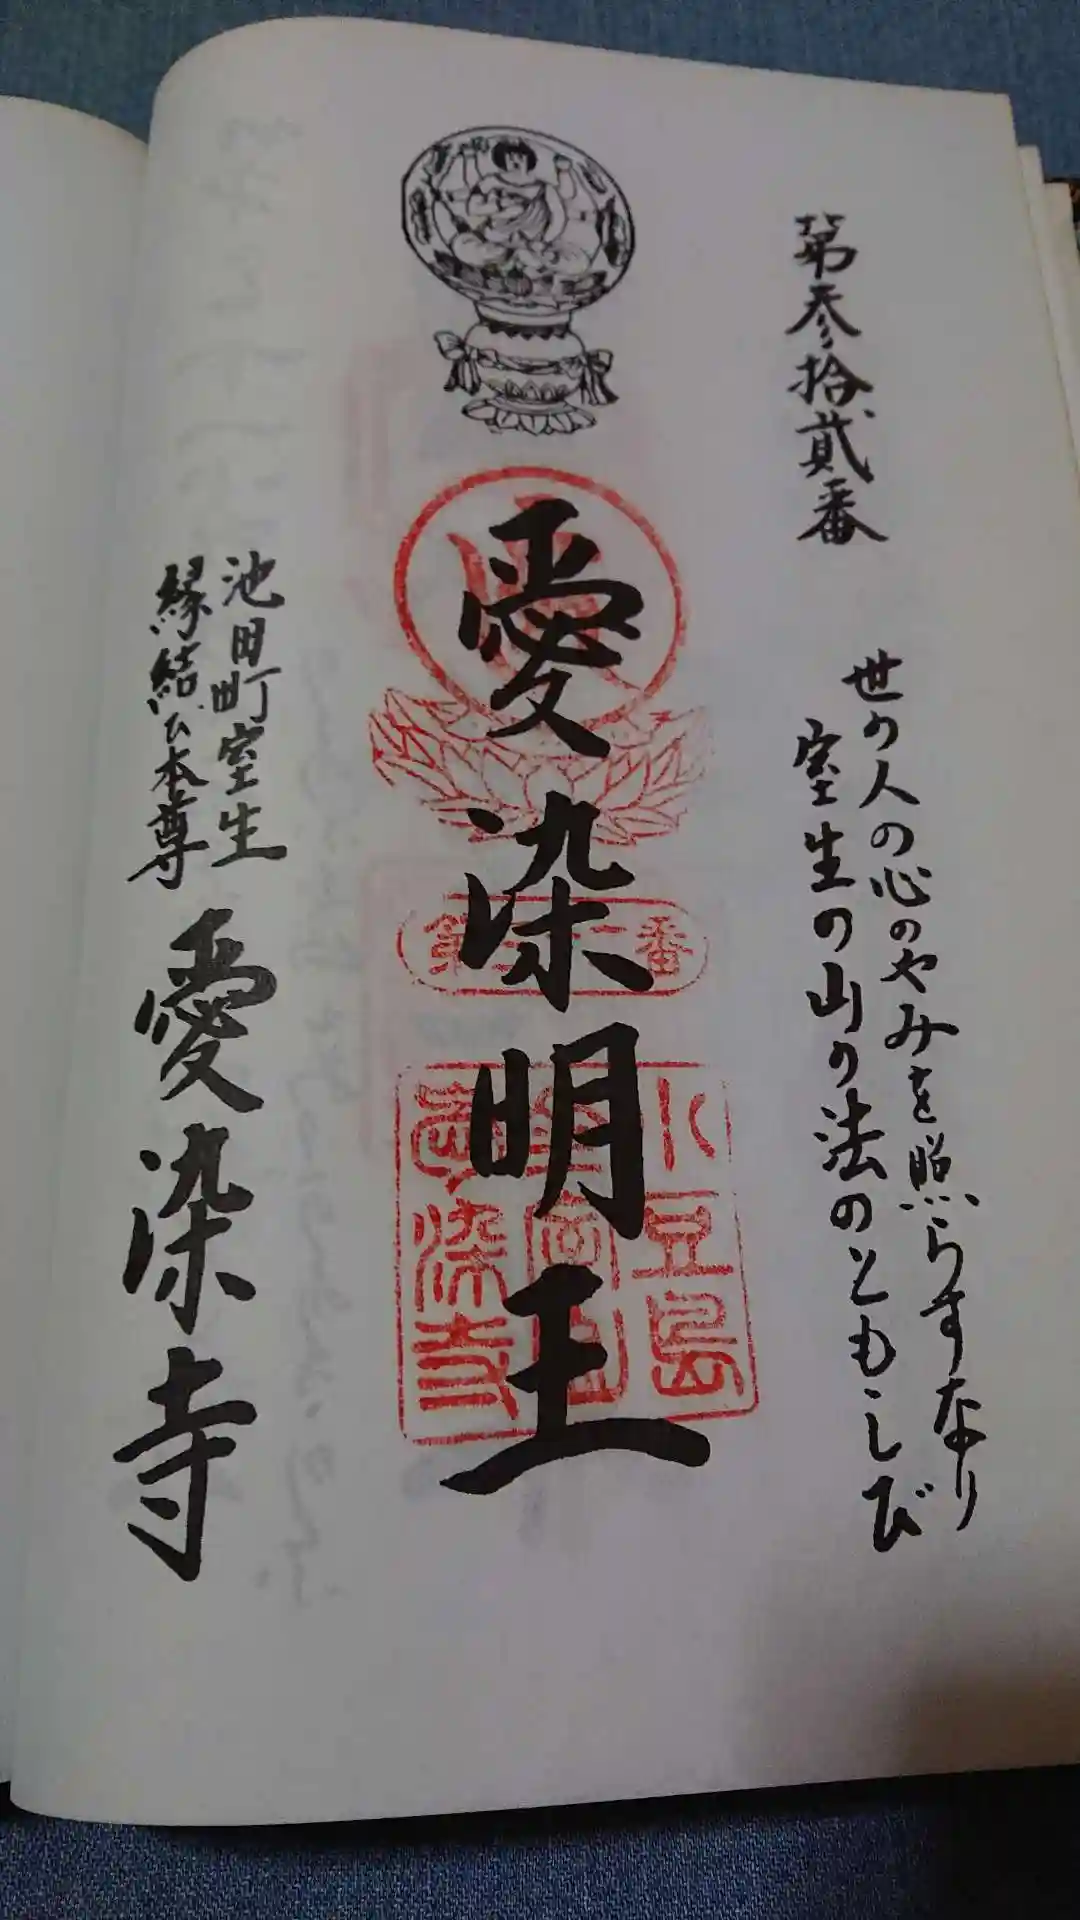 第参拾貳番
世の人の心のやみを照らすなり
室生の山の法のともしび
愛染明王
第三十二番
小豆島
愛染寺
池田町室生
縁結び本尊
愛染寺